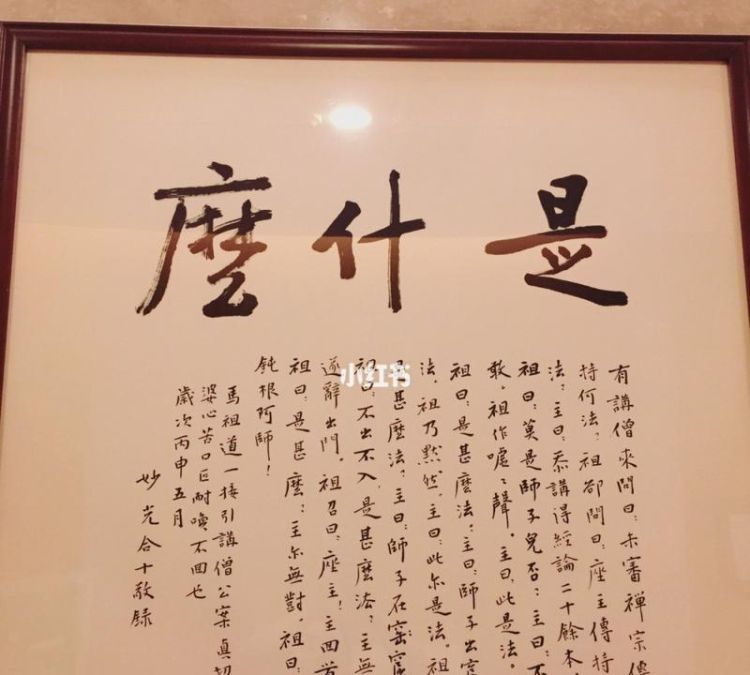 是什麼
有講僧來問曰:未審禪宗傳
持何法?祖卻問曰:座主傳持
法?主曰:忝講得經論二十餘本。
祖曰:莫是師子兒否?主曰:不
敢。祖作噓噓聲。主曰:此是法。
祖曰:是甚麼法?主曰:師子出窟
法。祖乃默然。主曰:此亦是法。祖
是甚麼法?主曰:師子在窟
祖曰:不出不入,是甚麼法?主無
遂辭出門。祖召曰:座主!主回首
祖曰:是甚麼?主亦無對。祖曰:
鈍根阿師!
馬祖道一接引講僧公案真切
婆心苦口叵耐喚不回也
歲次丙申五月
妙光合十敬錄
小红书